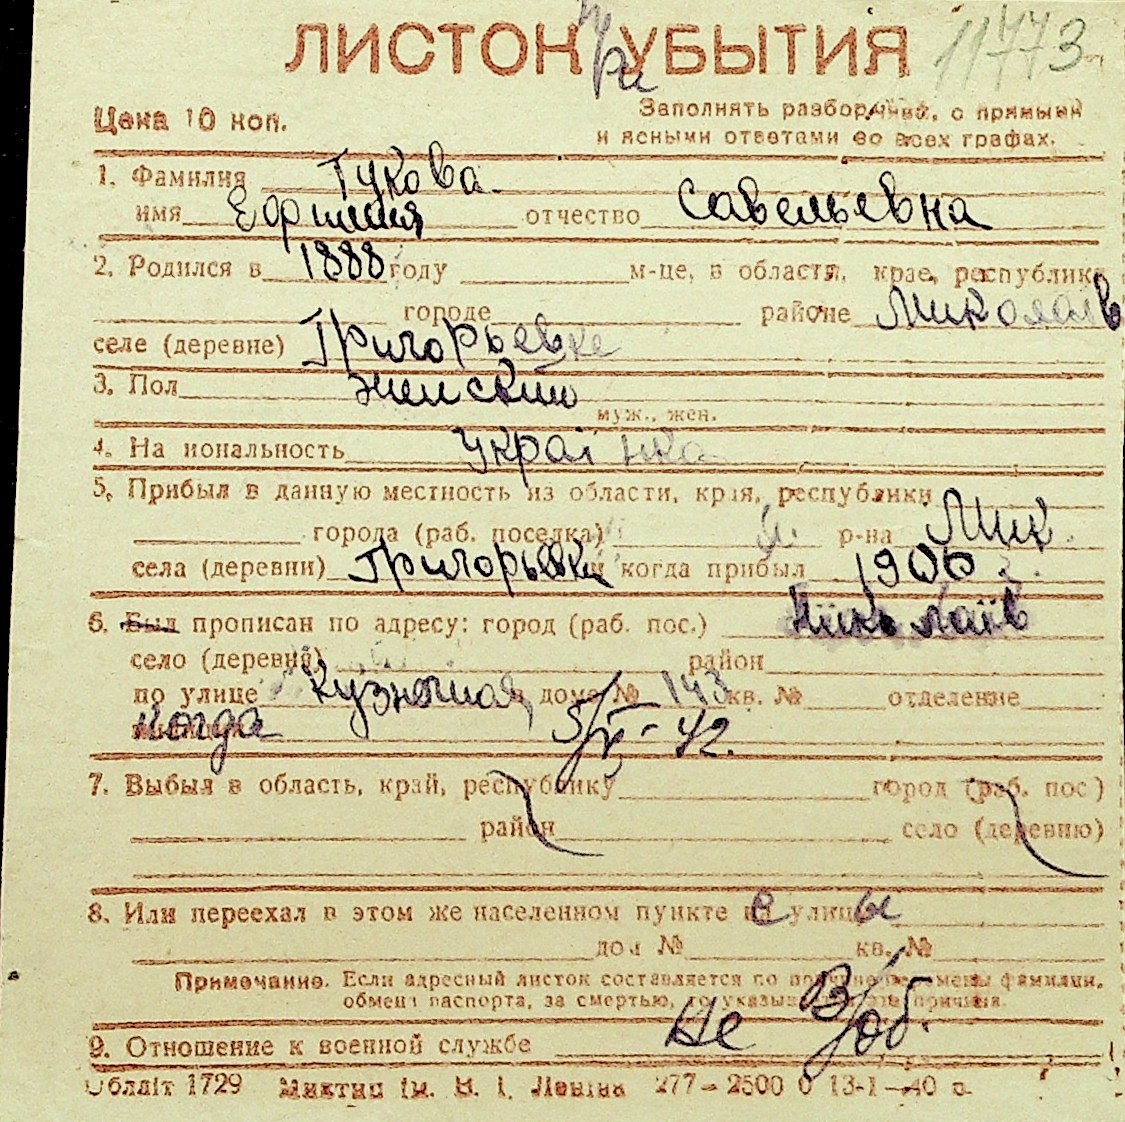 ЛИСТОК при УБЫТИЯ 11773
Цена 10 коп.
Заполнять разборчиво, с прямыми
и ясными ответами во всех графах.
1. Фамилия Гукова
имя отчество Савельевна
2. Родился в 1888 году м-це, в области, крае, республике
городе районе Миколаїв
селе (деревне) Григорьевке
3. Пол женский
муж., жен.
4. На иональность украінка
5. Прибыл в данную местность из области, края, республики
города (раб. поселка) р-на Мик.
села (деревни) Григорьевки и когда прибыл 1906
6. Был прописан по адресу: город (раб. пос.) Николаїв
село (деревня) район
по улице Кузнечная, дом № 143 кв. № отделение
когда 42.
7. Выбыл в область, край, республику город (раб. пос)
район село (деревню)
8. Или переехал в этом же населенном пункте с улицы
дом № кв. №
Примечание. Если адресный листок составляется по причине перемены фамилии,
обмена паспорта, за смертью, то указывается эта причина.
9. Отношение к военной службе не в/об.
Облліт 1729 Миктип ім. В. І. Леніна 277–2500 0 13-I–40 р.